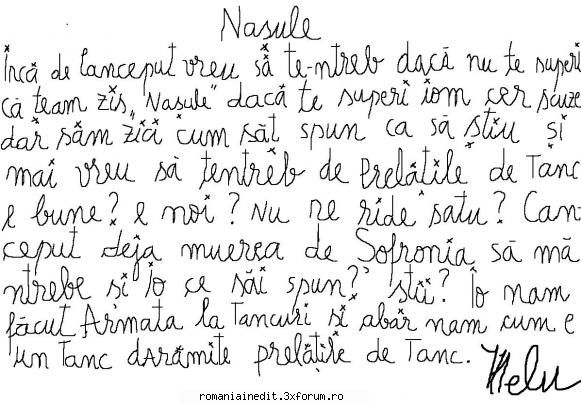 Nasule
Încă de lanceput vreu să te-ntreb dacă nu te superi
că team zis "Nasule" dacă te superi iom cer scuze
dar sămzici cum săt spun ca să stiu și
mai vreu să tentreb de Prelățile de Tanc
e bune? e noi? Nu ne ride satu? Can-
ceput deja muerea de Sofronia să mă
ntrebe și io ce săi spun? stii? Îo nam
făcut Armata la Tancuri si abăr nam cum e
un Tanc dARămite prelățile de Tanc.
Helu
romaniainedit.3xforum.ro